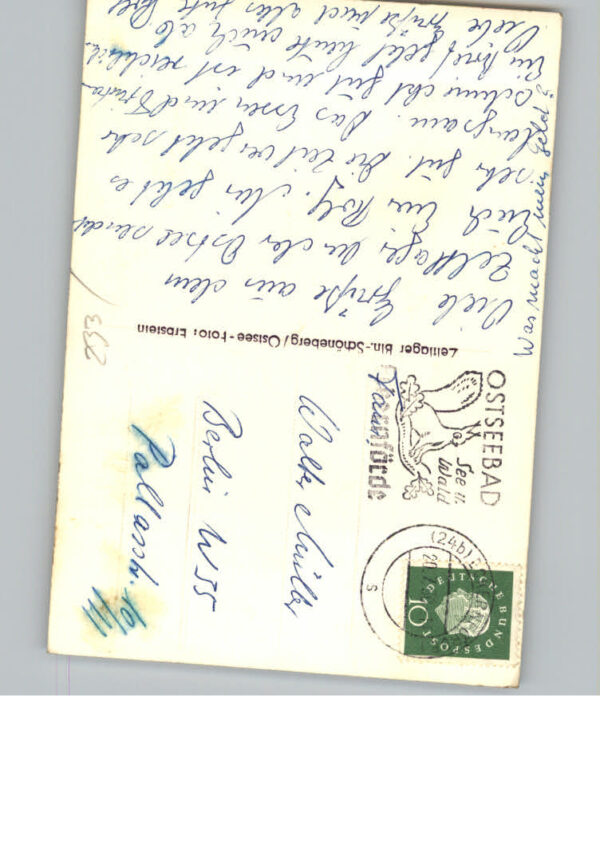 Viele Grüße aus dem
Zeltlager an der Ostsee sendet
Euch Euer Rolf. Mir geht es
sehr gut. Die Zeit vergeht sehr
langsam. Das Essen und Trinken
schmeckt gut und ist reichlich.
Ein Brief geht heute auch ab
Viele Grüße und alles Gute
Was macht mein Geld?
Zeltlager Bln.-Schöneberg/Ostsee - Foto: Erbstein
332
OSTSEEBAD
See u.
Wald
Eckernförde
(24b)
20.7.
s
DEUTSCHE BUNDESPOST
10
Walter Müller
Berlin W 35
Pallasstr. 10/
III